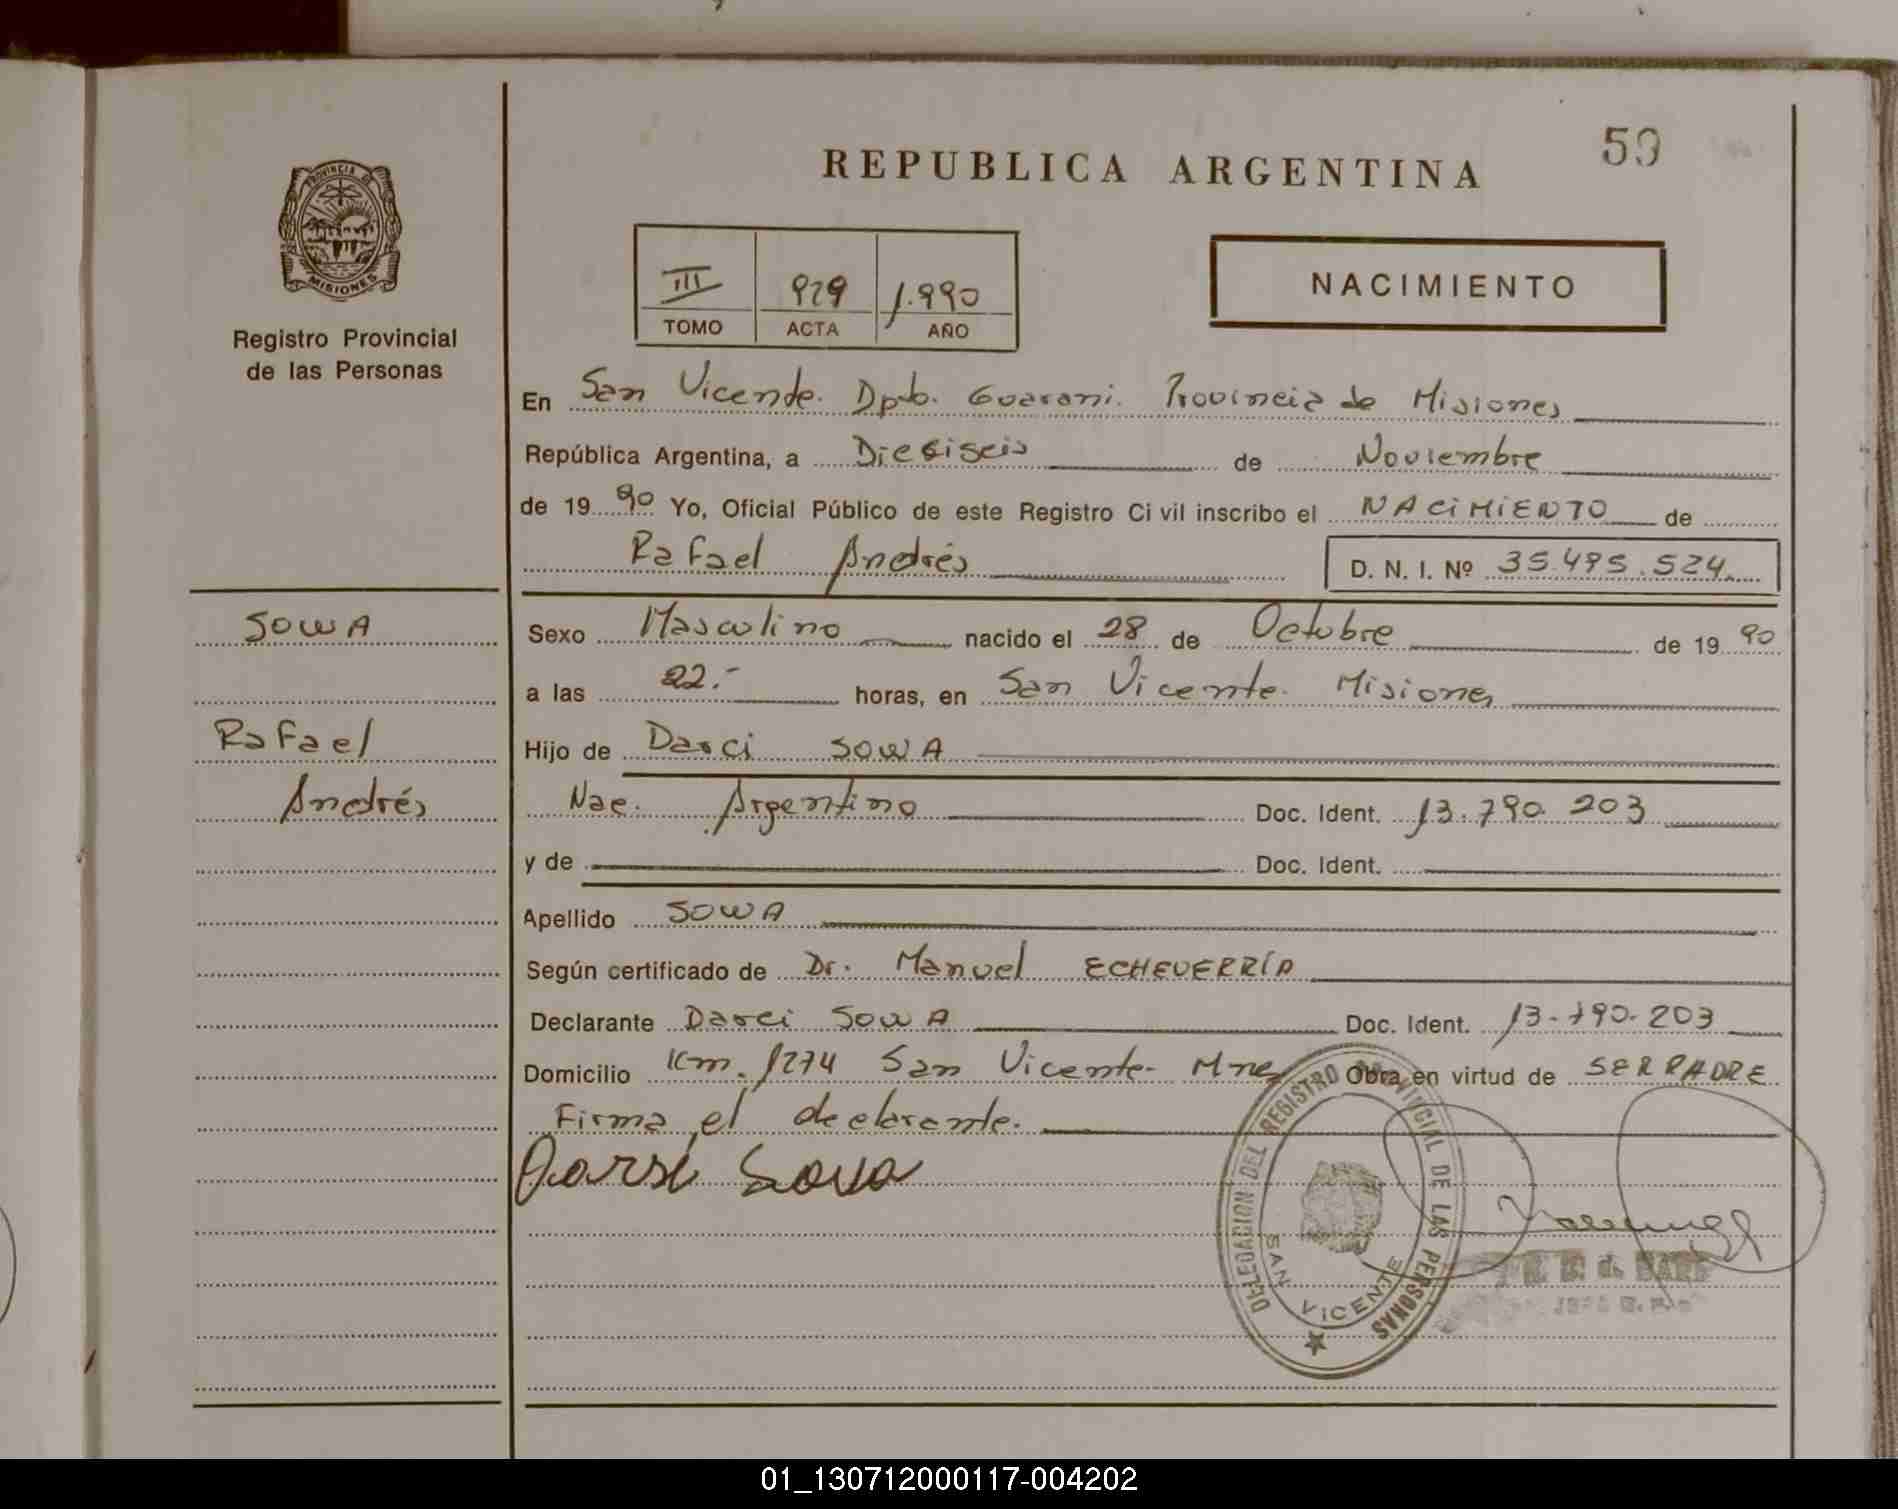 59
REPUBLICA ARGENTINA
PROVINCIA DE
MISIONES
Registro Provincial
de las Personas
III 929 1.990
TOMO ACTA AÑO
NACIMIENTO
En San Vicente. Dpto. Guarani. Provincia de Misiones
República Argentina, a Dieciseis de Noviembre
de 19 90 Yo, Oficial Público de este Registro Ci vil inscribo el NACIMIENTO de
Rafael Andrés D. N. I. Nº 35.495.524.
SOWA
Rafael
Andrés
Sexo Masculino nacido el 28 de Octubre de 19 90
a las 22.- horas, en San Vicente. Misiones
Hijo de Darci SOWA
Nac. Argentino Doc. Ident. 13.790.203
y de Doc. Ident.
Apellido SOWA
Según certificado de Dr. Manuel ECHEVERRÍA
Declarante Darci SOWA Doc. Ident. 13.790.203
Domicilio Km. 1274 San Vicente - Mnes Obra en virtud de SER PADRE
Firma el declarante.
Darsi Sova
DELEGACION DEL REGISTRO PROVINCIAL DE LAS PERSONAS
SAN VICENTE
01_130712000117-004202